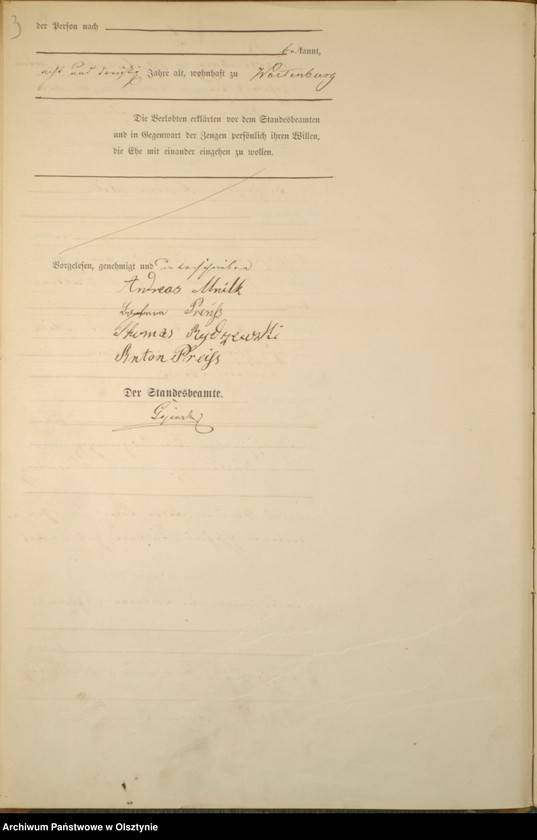 3
der Person nach
bekannt,
acht und dreißig Jahre alt, wohnhaft zu Wartenburg
Die Verlobten erklärten vor dem Standesbeamten
und in Gegenwart der Zeugen persönlich ihren Willen,
die Ehe mit einander eingehen zu wollen.
Vorgelesen, genehmigt und unterschrieben
Andreas
Barbara Preuß
Thomas Rydzewski
Anton Preiß
Der Standesbeamte.
Archiwum Państwowe w Olsztynie